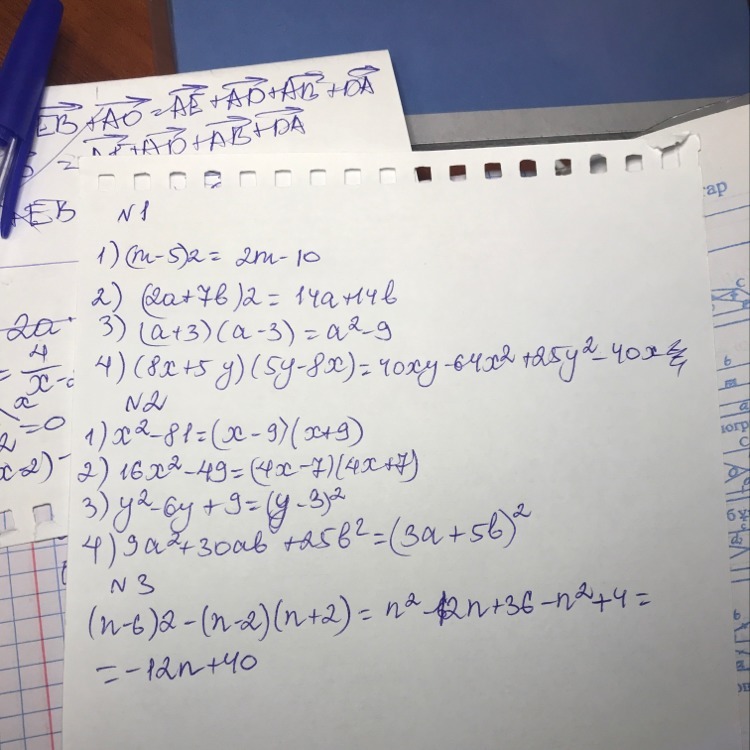 EB + AO = AE + AD + AB + DA
= AE + AD + AB + DA
AEB
N1
1) (m-5)2 = 2m-10
2) (2a+7b)2 = 14a+14b
3) (a+3)(a-3) = a²-9
4) (8x+5y)(5y-8x) = 40xy-64x²+25y²-40x
N2
1) x²-81=(x-9)(x+9)
2) 16x²-49=(4x-7)(4x+7)
3) y²-6y+9=(y-3)²
4) 9a²+30ab+25b²=(3a+5b)²
N3
(n-6)2-(n-2)(n+2) = n²-12n+36-n²+4=
=-12n+40
2a
= 4
x
=0
x-2)
гар